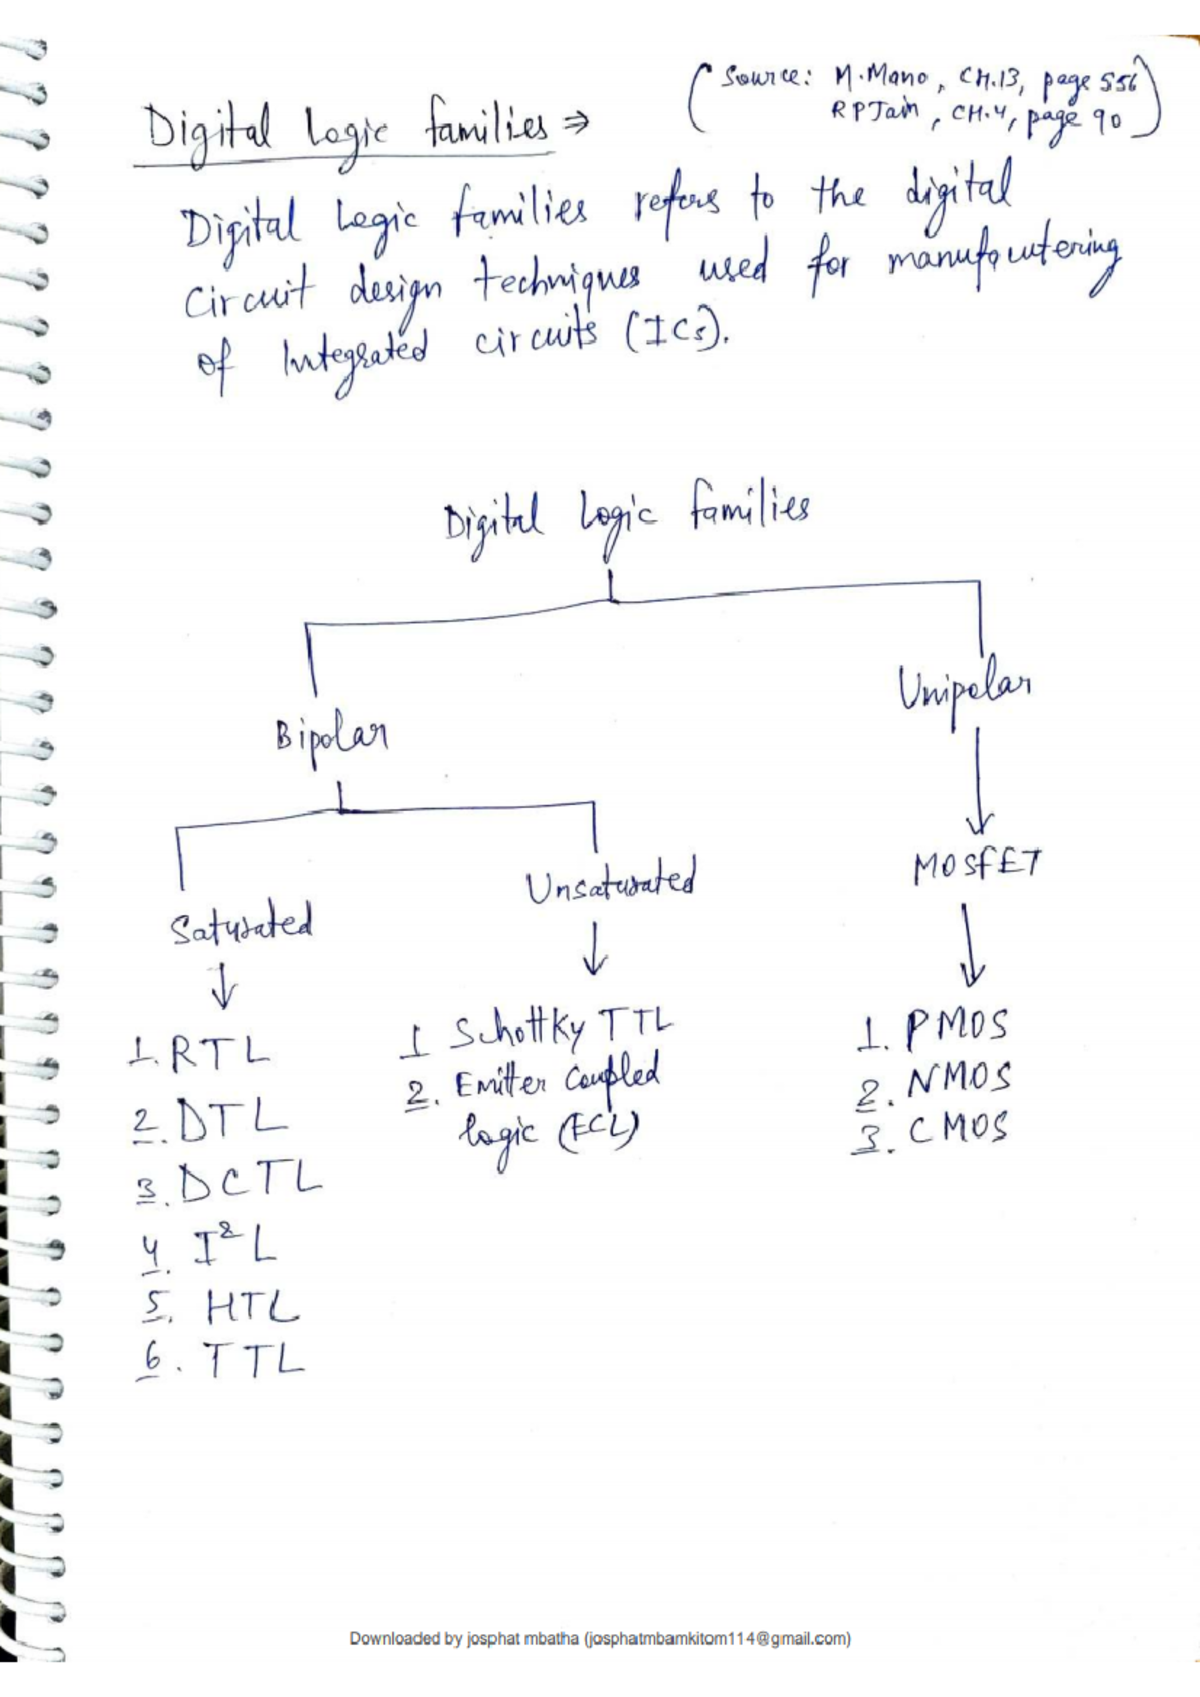 (Source: M.Mano, CH.13, page 556
RPJain, CH.4, page 90)
Digital Logic families ⇒
Digital Logic families refers to the digital
Circuit design techniques used for manufacutering
of Integrated circuits (ICs).
Digital Logic families
Bipolar
Unipolar
Saturated
Unsaturated
MOSFET
1. RTL
2. DTL
3. DCTL
4. I²L
5. HTL
6. TTL
1 Schottky TTL
2. Emitter Coupled
logic (ECL)
1. PMOS
2. NMOS
3. CMOS
Downloaded by josphat mbatha (josphatmbamkitom114@gmail.com)